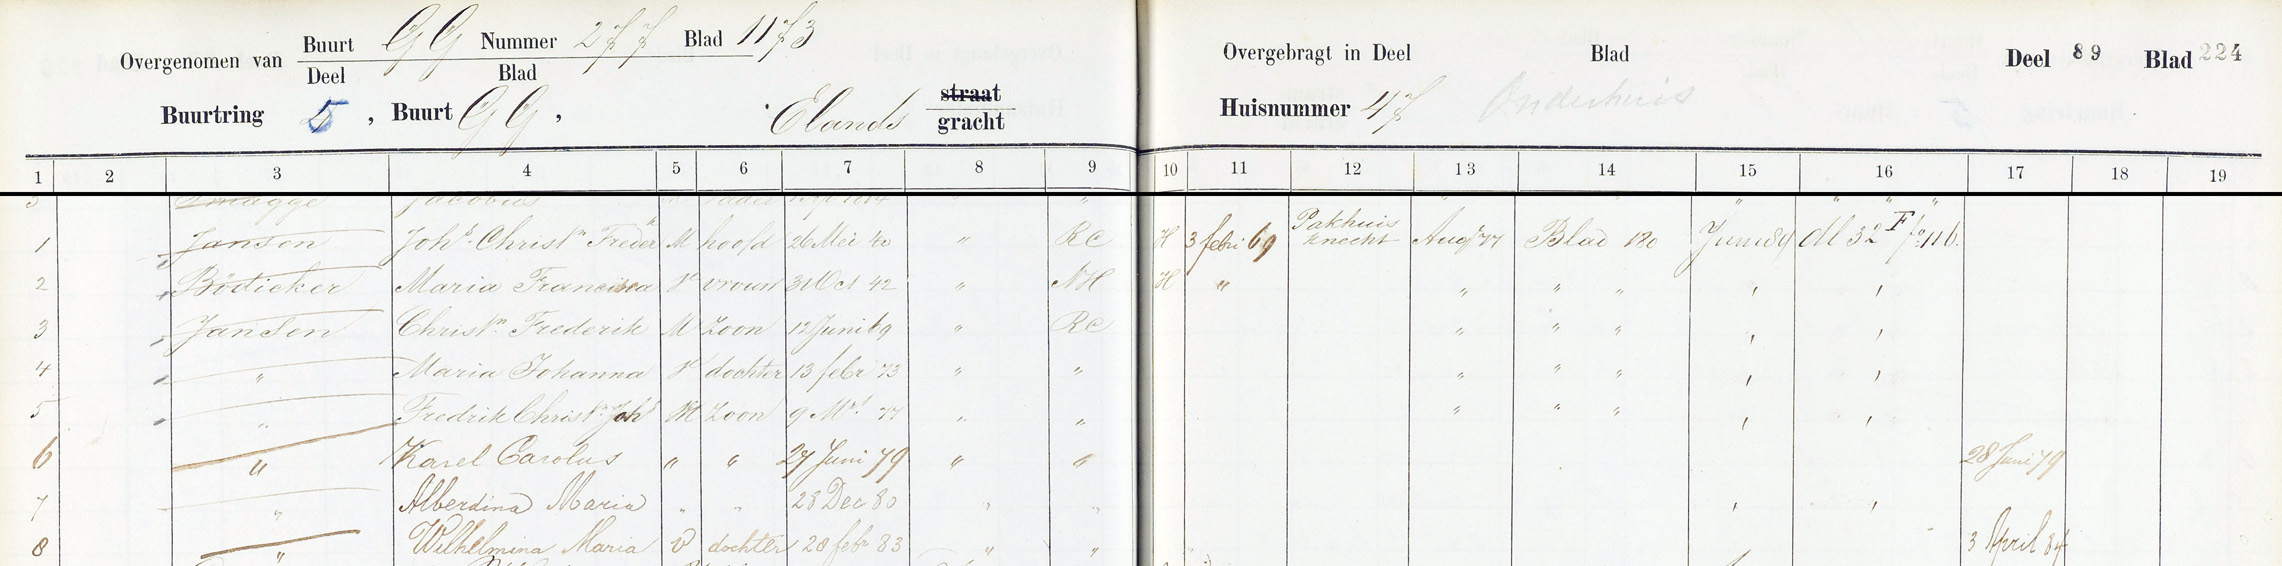 Overgenomen van Buurt GG Nummer 277 Blad 1173
Deel Blad
Buurtring 5, Buurt GG, Elands straat gracht
Overgebragt in Deel Blad Deel 89 Blad 224
Huisnummer 47 Onderhuis
1 2 3 4 5 6 7 8 9 10 11 12 13 14 15 16 17 18 19
1 Jansen Johs. Christn Frederk M hoofd 26 Mei 40 " RC H 3 febri 69 Pakhuis knecht Augs 77 Blad 180 Juni 89 dl 32 F fo 116.
2 Bödicker Maria Francisca V vrouw 31 Oct 42 " NH H " " " " " "
3 Jansen Christn Frederik M Zoon 12 Juni 69 " RC " " " " "
4 " Maria Johanna V dochter 13 febr 73 " " " " " " "
5 " Fredrik Christn Johs M Zoon 9 Mrt 77 " " " " " " "
6 " Karel Carolus " " 27 Juni 79 " " 28 Juni 79
7 " Alberdina Maria " " 28 Dec 80 " " " "
8 " Wilhelmina Maria V dochter 28 febr 83 " " 3 April 84